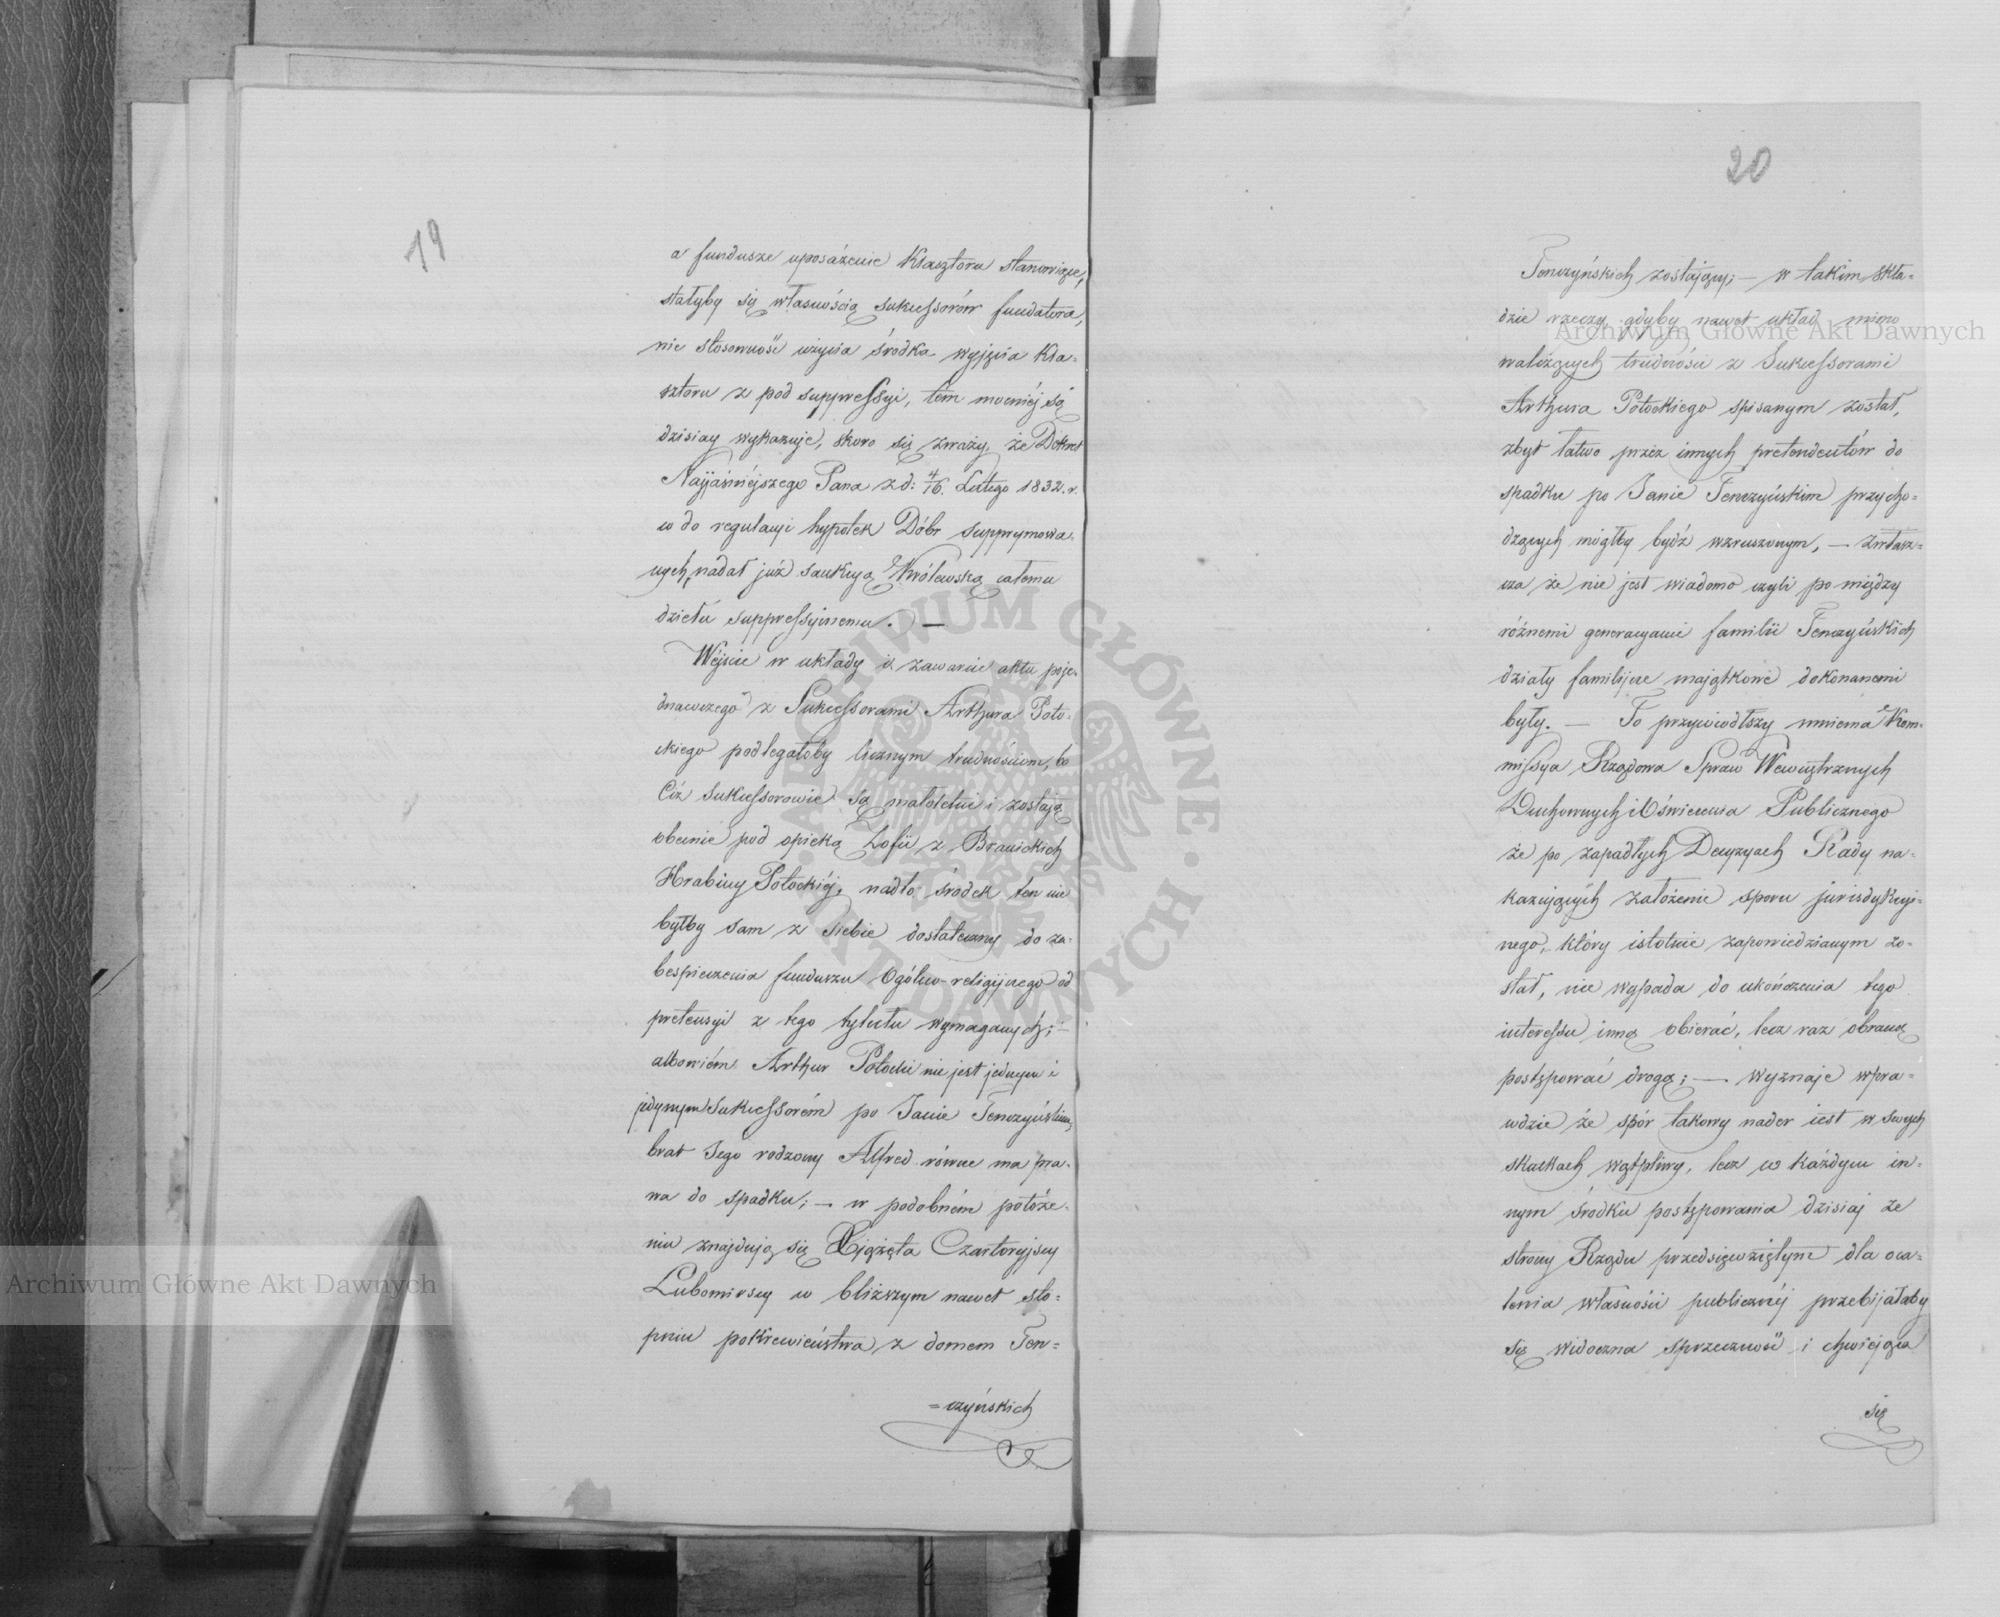 19
a fundusze uposażenie Klasztoru stanowiące,
stałyby się własnością sukcessorów fundatora,
nie stosowność użycia środka wyjęcia Kla-
sztoru z pod suppressyi, tém mocniéj są
dzisiay wykazuje, skoro się zważy, że Dekret
Nayjaśniéjszego Pana z d: 4/16. Lutego 1832. r.
co do regulacyi hypotek Dóbr supprymowa-
nych, nadał już sankcyą Królewską całemu
dziełu suppressyinemu. —
Wéjście w układy i zawarcie aktu poje-
dnawczego z Sukcessorami Arthura Poto-
ckiego podlegałoby licznym trudnościom, bo
Ciż sukcessorowie są małoletni i zostają
obecnie pod opieką Zofii z Branickich
Hrabiny Potockiéj, nadto środek ten nie
byłby sam z siebie dostateczny do za-
bespieczenia funduszu Ogólno-religijnego od
pretensyi z tego tytułu wymaganych; —
albowiém Arthur Potocki nie jest jednym i
jedynym Sukcessorém po Janie Tenczyńskim,
brat Jego rodzony Alfred równe ma pra-
wa do spadku; — w podobném położe-
niu znajdują się Xiążęta Czartoryjscy
Lubomirscy w bliższym nawet sto-
pniu pokrewieństwa z domem Ten-
=czyńskich
20
Tenczyńskich zostający; — w takim skła-
dzie rzeczy, gdyby nawet układ mimo
walczących trudności z Sukcessorami
Arthura Potockiego spisanym został,
zbyt łatwo przez innych pretendentów do
spadku po Janie Tenczyńskim przycho-
dzących mógłby bydź wzruszonym, — zwłasz-
cza że nie jest wiadomo czyli po między
różnemi generacyami familii Tenczyńskich
działy familijne majątkowe dokonanemi
były. — To przywiodłszy mniema Kom-
missya Rządowa Spraw Wewnętrznych
Duchownych i Oświecenia Publicznego
że po zapadłych Decyzyach Rady na-
kazujących założenie sporu jurisdykcyi-
nego, który istotnie zapowiedzianym zo-
stał, nie wypada do ukończenia tego
interessu inną obierać, lecz raz obraną
postępować drogą; — wyznaje wpra-
wdzie że spór takowy nader iest w swych
skutkach wątpliwy, lecz w każdym in-
nym środku postępowania dzisiaj ze
strony Rządu przedsięwziętym dla oca-
lenia własności publicznéj przebijałaby
się widoczna sprzeczność i chwiejąca
się
Archiwum Główne Akt Dawnych
Archiwum Główne Akt Dawnych
ARCHIWUM GŁÓWNE · AKT DAWNYCH ·